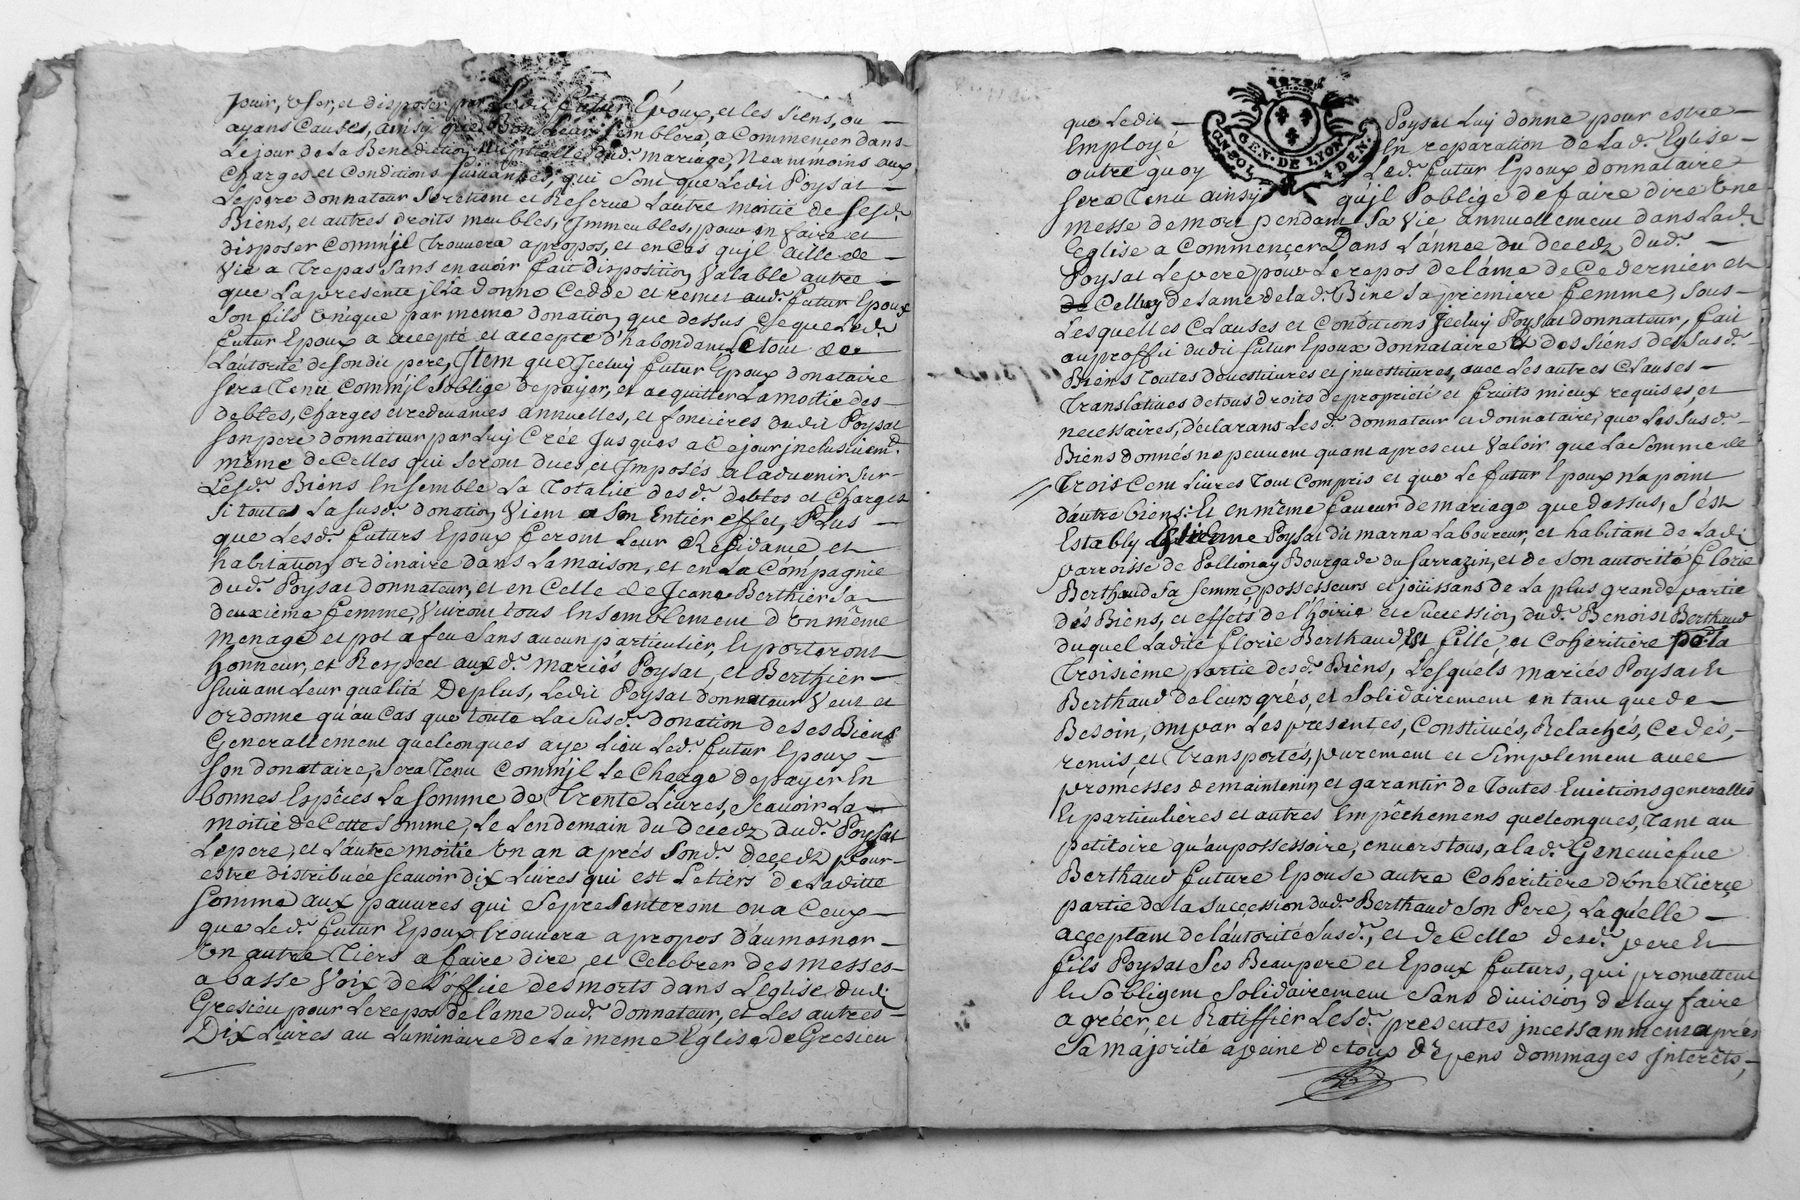 Jouir, User, et disposer par Ledit futur Epoux, et les siens, ou
ayans Causes, ainsy que Bon Leur semblera, a Commencer dans
Le jour de la Benediction Nuptialle dud. mariage, Neanmoins aux
Charges et Conditions suivantes, qui sont que Ledit Poysat
Le pere donnateur se retient et Reserve L'autre moitié de sesd.
Biens, et autres droits meubles, Immeubles, pour en faire et
disposer Comm'jl trouvera apropos, et en cas qu'jl aille de
Vie a trepas sans en avoir fait disposition Valable autre
que La presente jl l'a donne Cedde et remet aud. futur Epoux
son fils Unique par meme donation que dessus Ce que Led.
futur Epoux a accepté et accepte d'habondant Le tout de
L'autorité de sondit pere, Item que Jceluy futur Epoux donataire
sera Tenu Comm'jl s'oblige de payer, et acquitter La moitié des
debtes, Charges et redevances annuelles, et foncieres dudit Poysat
son pere donnateur par Luy Créé Jusques a Ce jour jnclusivemt.
même de Celles qui seront dues et Imposés a l'advenir sur
Lesd. Biens Ensemble La Totalité desd. debtes et Charges
si toutes La susd. donation Vient a son Entier effet, Plus
que Lesd. futurs Epoux feront Leur Residance et
habitation ordinaire dans La maison, et en La Compagnie
dud. Poysat donnateur, et en Celle de Jeane Berthier sa
deuxième femme, Vivront tous Ensemblement d'Un même
menage et pot a feu sans aucun particulier, Et porteront
honneur, et Respect auxd. mariés Poysat, et Berthier
suivant Leur qualité Deplus, Ledit Poysat donnateur Veut et
ordonne qu'au Cas que toute La susd. donation de ses Biens
Generallement quelconques aye Lieu Led. futur Epoux
son donataire, sera Tenu Comm'jl le Charge de payer En
bonnes Espèces La somme de Trente Livres, Scavoir La
moitié de Cette somme, Le Lendemain du Decedz dud. Poysat
Le pere, et L'autre moitié Un an aprés sond. decedz pour
estre distribuée scavoir Dix Livres qui est Le tiers de Laditte
somme aux pauvres qui se presenteront ou a Ceux
que Led. futur Epoux trouvera apropos d'aumosner
Un autre Tiers a faire dire et Celebrer des messes
a basse Voix de L'office des morts dans L'eglise dudi
Gresieu pour Le repos de l'ame dud. donnateur, et Les autres
Dix Livres au Luminaire de La meme Eglise de Gresieu
que Ledit Poysat Luy donne pour estre
Employé En reparation de Lad. Eglise
outre quoy Led. futur Epoux donnataire
sera Tenu ainsy qu'jl s'oblige de faire dire Une
messe de mort pendant sa Vie annuellement dans Lad.
Eglise a Commencer Dans L'année du decedz dud.
Poysat Le pere pour Le repos de l'ame de Ce dernier et
de Celluy de l'ame de lad. Bine sa premiere femme, sous
Lesquelles Clauses et Conditions Jceluy Poysat donnateur, fait
au proffit dudit futur Epoux donnataire et des siens des susd.
Biens toutes devestitures et jnvestitures, avec Les autres Clauses
Translatives de tous droits de propriété et fruits mieux requises, et
necessaires, déclarans Lesd. donnateur et donnataire, que Les susd.
Biens donnés ne peuvent quant a present Valoir que La somme de
Trois Cent Livres Tout Compris et que Le futur Epoux n'a point
d'autre biens. Et en même faveur de mariage que dessus, s'est
Estably Estienne Poysat dit marna Laboureur, et habitant de Lad.
parroisse de Pollionay Bourgade du sarrazin, et de son autorité florie
Berthaud sa femme possesseurs et joüissans de La plus grande partie
des Biens, et effets de l'hoirie et succession dud. Benoist Berthaud
duquel Ladite florie Berthaud Est fille, et Coheritiere po.r la
Troisième partie desd. Biens, Lesquels mariés Poysat Et
Berthaud de leurs grés, et solidairement en tant que de
Besoin, ont par Les presentes, Constitués, Relachés, Cedés,
remis, et Transportés, purement et simplement avec
promesses de maintenir, et garantir de Toutes Evictions generalles
Et particulières et autres Empêchemens quelconques, tant au
petitoire qu'au possessoire, envers tous, a lad. Geneviefve
Berthaud future Epouse autre Coheritière d'Une Tierçe
partie de la succession dud. Berthaud son Pere, Laquelle
acceptant de l'autorité susd., et de Celle desd. pere Et
fils Poysat ses Beaupere et Epoux futurs, qui promettent
Et s'obligent solidairement sans division de luy faire
agréer, et Ratiffier Lesd. presentes jncessamment aprés
sa majorité a peine de tous dépens dommages jnterets,
GEN. DE LYON
4 DEN.